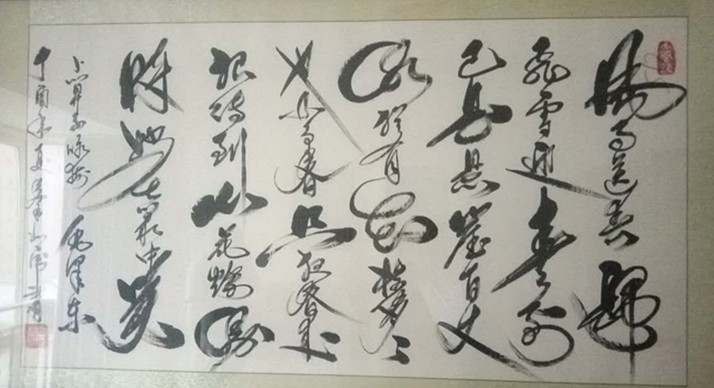 風雨送春歸
飛雪迎春到
已是悬崖百丈
冰犹有花枝俏〻
也不争春只把春来
报待到山花烂漫
時她在叢中笑
卜算子咏梅 毛泽东
丁酉年夏